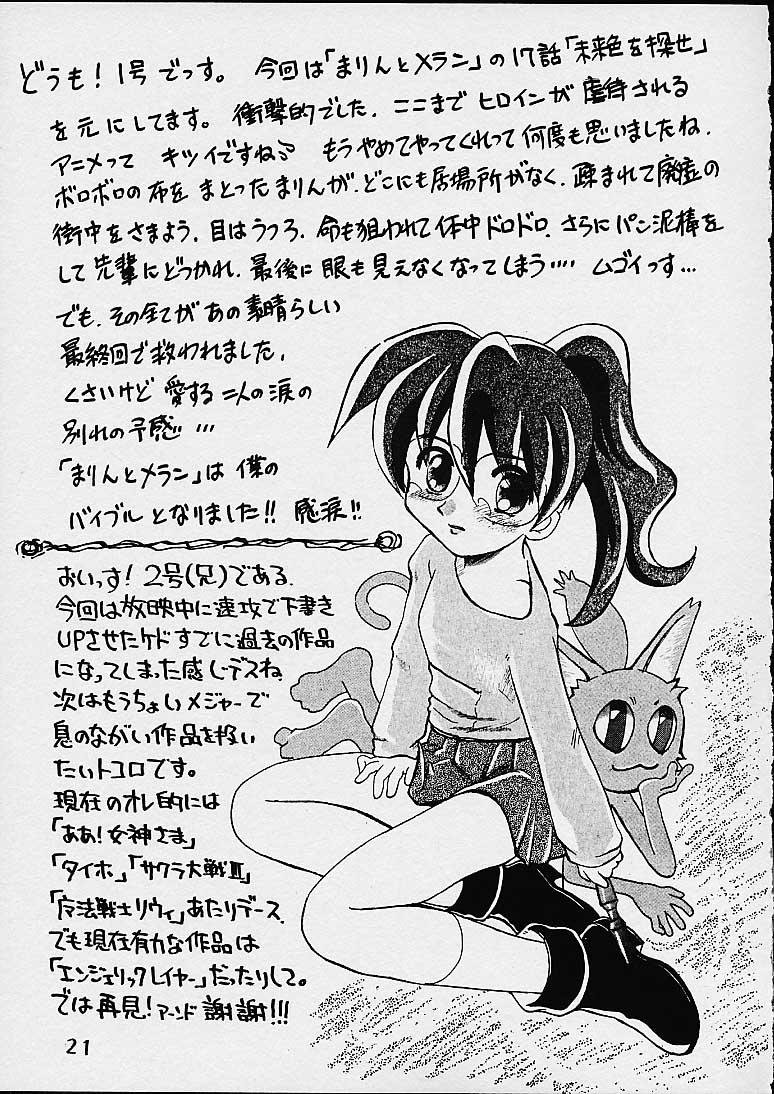 どうも！1号でっす。今回は「まりんとメラン」の17話「未来色を探せ」
を元にしてます。衝撃的でした．ここまでヒロインが虐待される
アニメって キツイですね もうやめてやってくれって何度も思いましたね．
ボロボロの布をまとったまりんが．どこにも居場所がなく．疎まれて廃墟の
街中をさまよう．目はうつろ．命も狙われて体中ドロドロ．さらにパン泥棒を
して先輩にどつかれ．最後に眼も見えなくなってしまう‥‥ ムゴイっす…
でも．その全てがあの素晴らしい
最終回で救われました．
くさいけど 愛する二人の涙の
別れの予感…
「まりんとメラン」は僕の
バイブルとなりました!! 感涙!!
おいっす！2号(兄)である．
今回は放映中に速攻で下書き
UPさせたケドすでに過去の作品
になってしまった感じデスね
次はもうちょいメジャーで
息のながい作品を扱い
たいトコロです。
現在のオレ的には
「ああ！女神さま」
「タイホ」「サクラ大戦Ⅲ」
「魔法戦士リウイ」あたりデース．
でも現在有力な作品は
「エンジェリックレイヤー」だったりして。
では再見！アーンド謝謝!!!
21